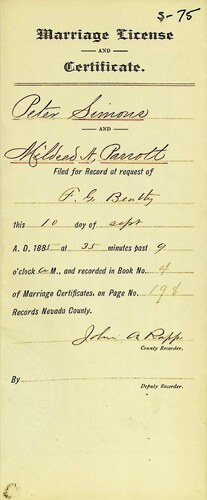 S-75
Marriage License
AND
Certificate.
Peter Simons
AND
Mildred A, Parrott
Filed for Record at request of
F. G. Beatty
this 10 day of Sept
A. D. 1885 at 35 minutes past 9
o'clock a M., and recorded in Book No. 4
of Marriage Certificates, on Page No. 198
Records Nevada County.
John A Rapp
County Recorder.
By
Deputy Recorder.